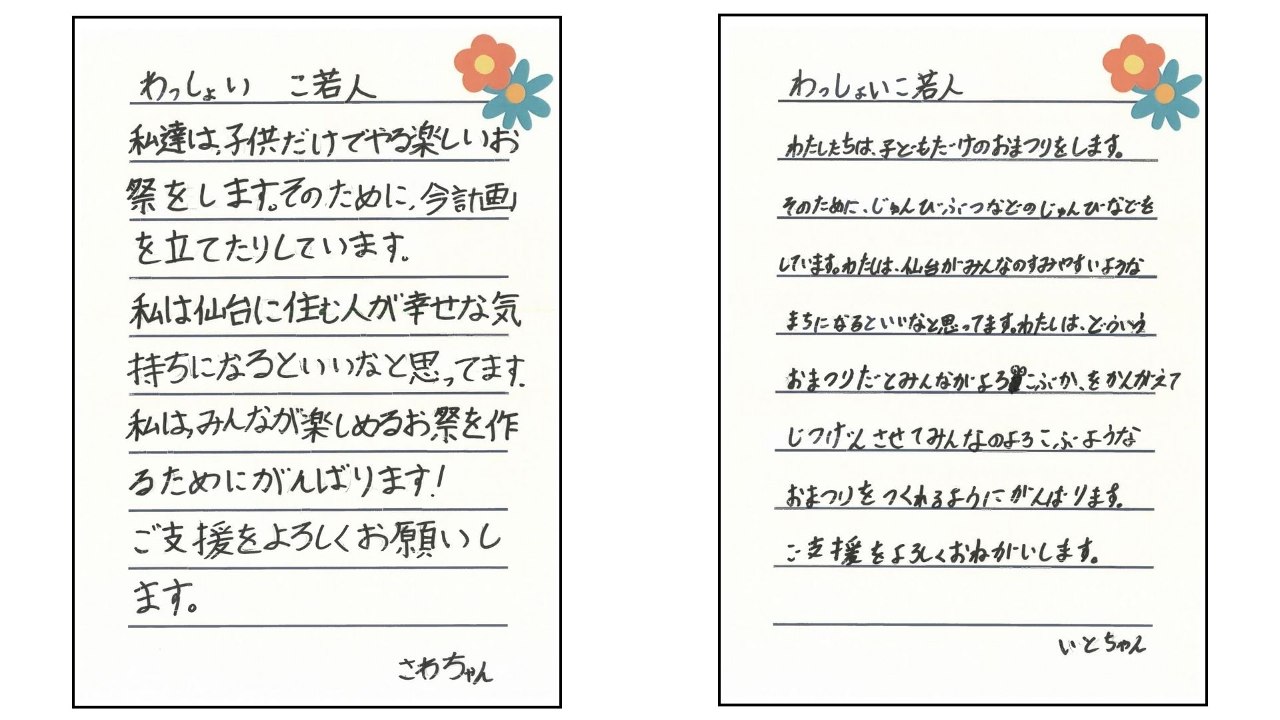 わっしょい こ若人
私達は、子供だけでやる楽しいお
祭をします。そのために、今計画
を立てたりしています。
私は仙台に住む人が幸せな気
持ちになるといいなと思ってます。
私は、みんなが楽しめるお祭を作
るためにがんばります!
ご支援をよろしくお願いし
ます。
さわちゃん
わっしょいこ若人
わたしたちは、子どもだけのおまつりをします。
そのために、じゅんびぶつなどのじゅんびなどを
しています。わたしは、仙台がみんなのすみやすいような
まちになるといいなと思ってます。わたしは、どういう
おまつりだとみんながよろこぶか、をかんがえて
じつげんさせてみんなのよろこぶような
おまつりをつくれるようにがんばります。
ご支援をよろしくおねがいします。
いとちゃん